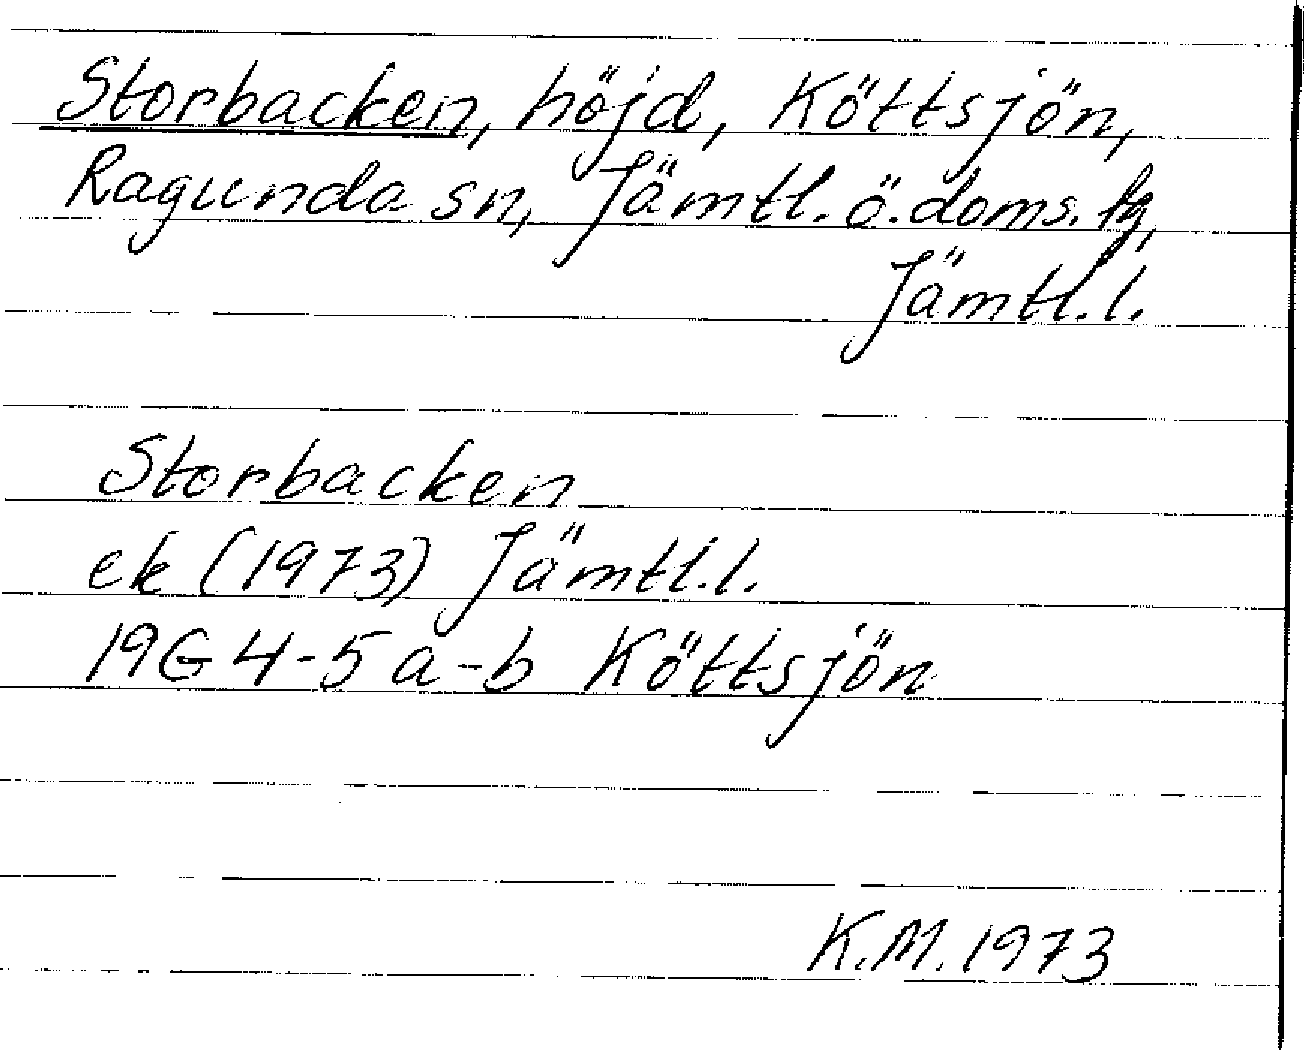 Storbacken, höjd, Köttsjön,
Ragunda sn, Jämtl. ö. doms. lg,
Jämtl. l.
Storbacken
ek (1973) Jämtl. l.
19G 4-5 a-b Köttsjön
K.M. 1973